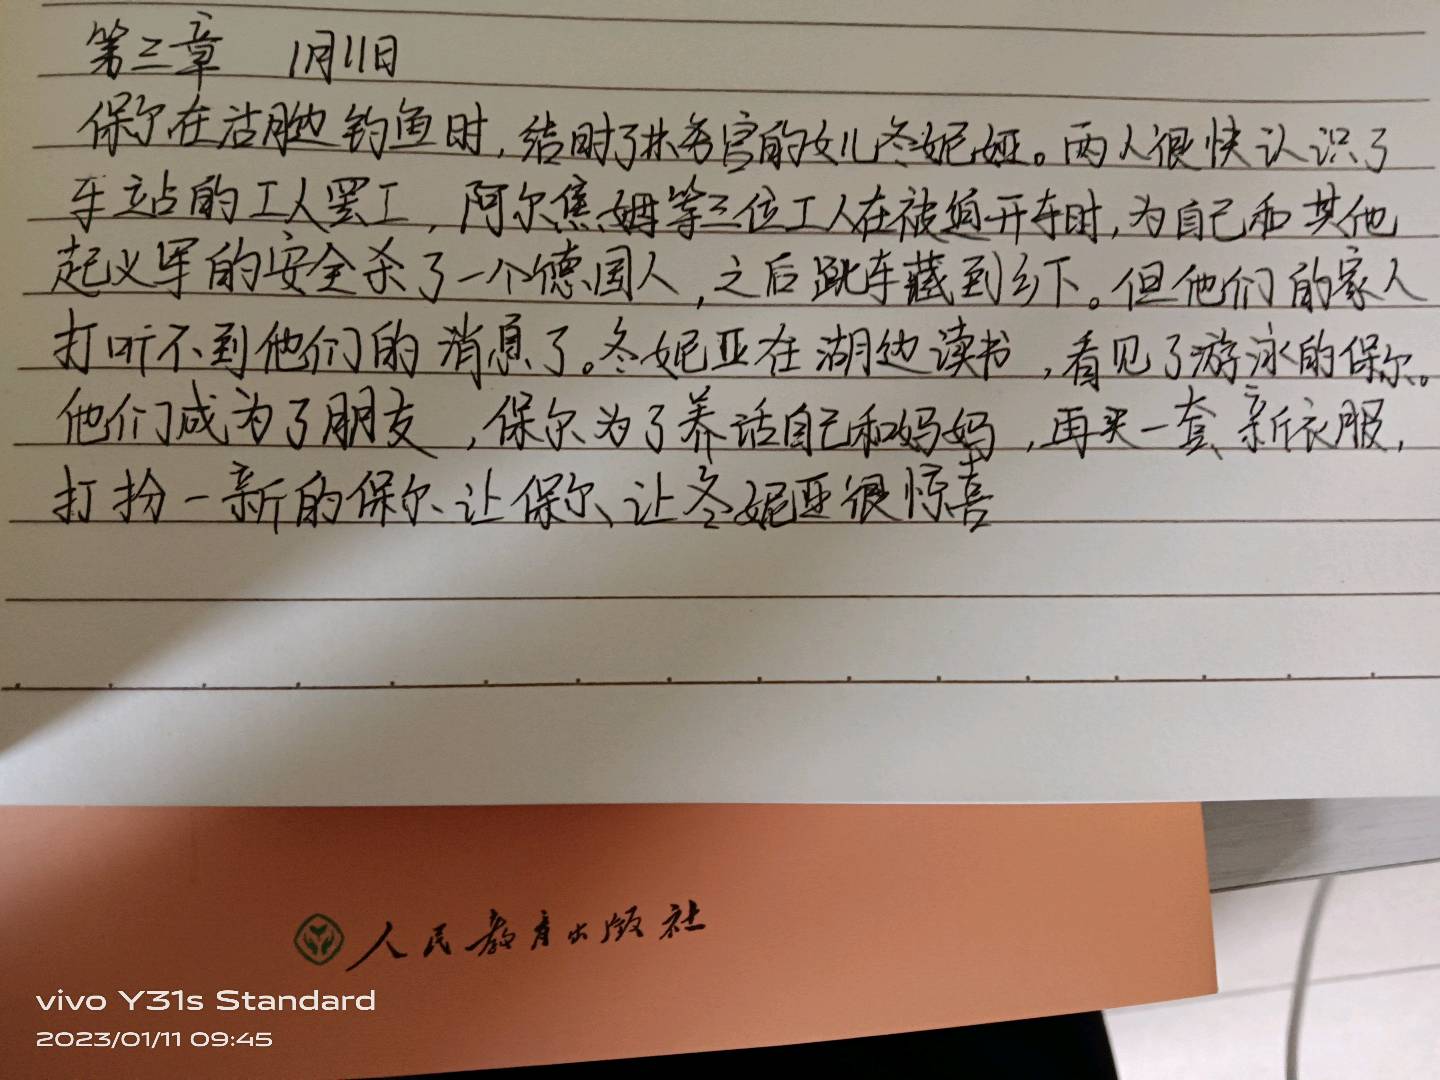 第三章 1月11日
保尔在沽胞边钓鱼时,结时了林务官的女儿冬妮娅。两人很快认识了
车站的工人罢工,阿尔焦姆等三位工人在被迫开车时,为自己和其他
起义军的安全杀了一个德国人,之后跳车藏到乡下。但他们的家人
打听不到他们的消息了。冬妮亚在湖边读书,看见了游泳的保尔。
他们成为了朋友,保尔为了养话自己和妈妈,再买一套新衣服,
打扮一新的保尔、让保尔、让冬妮亚很惊喜
人民教育出版社
vivo Y31s Standard
2023/01/11 09:45